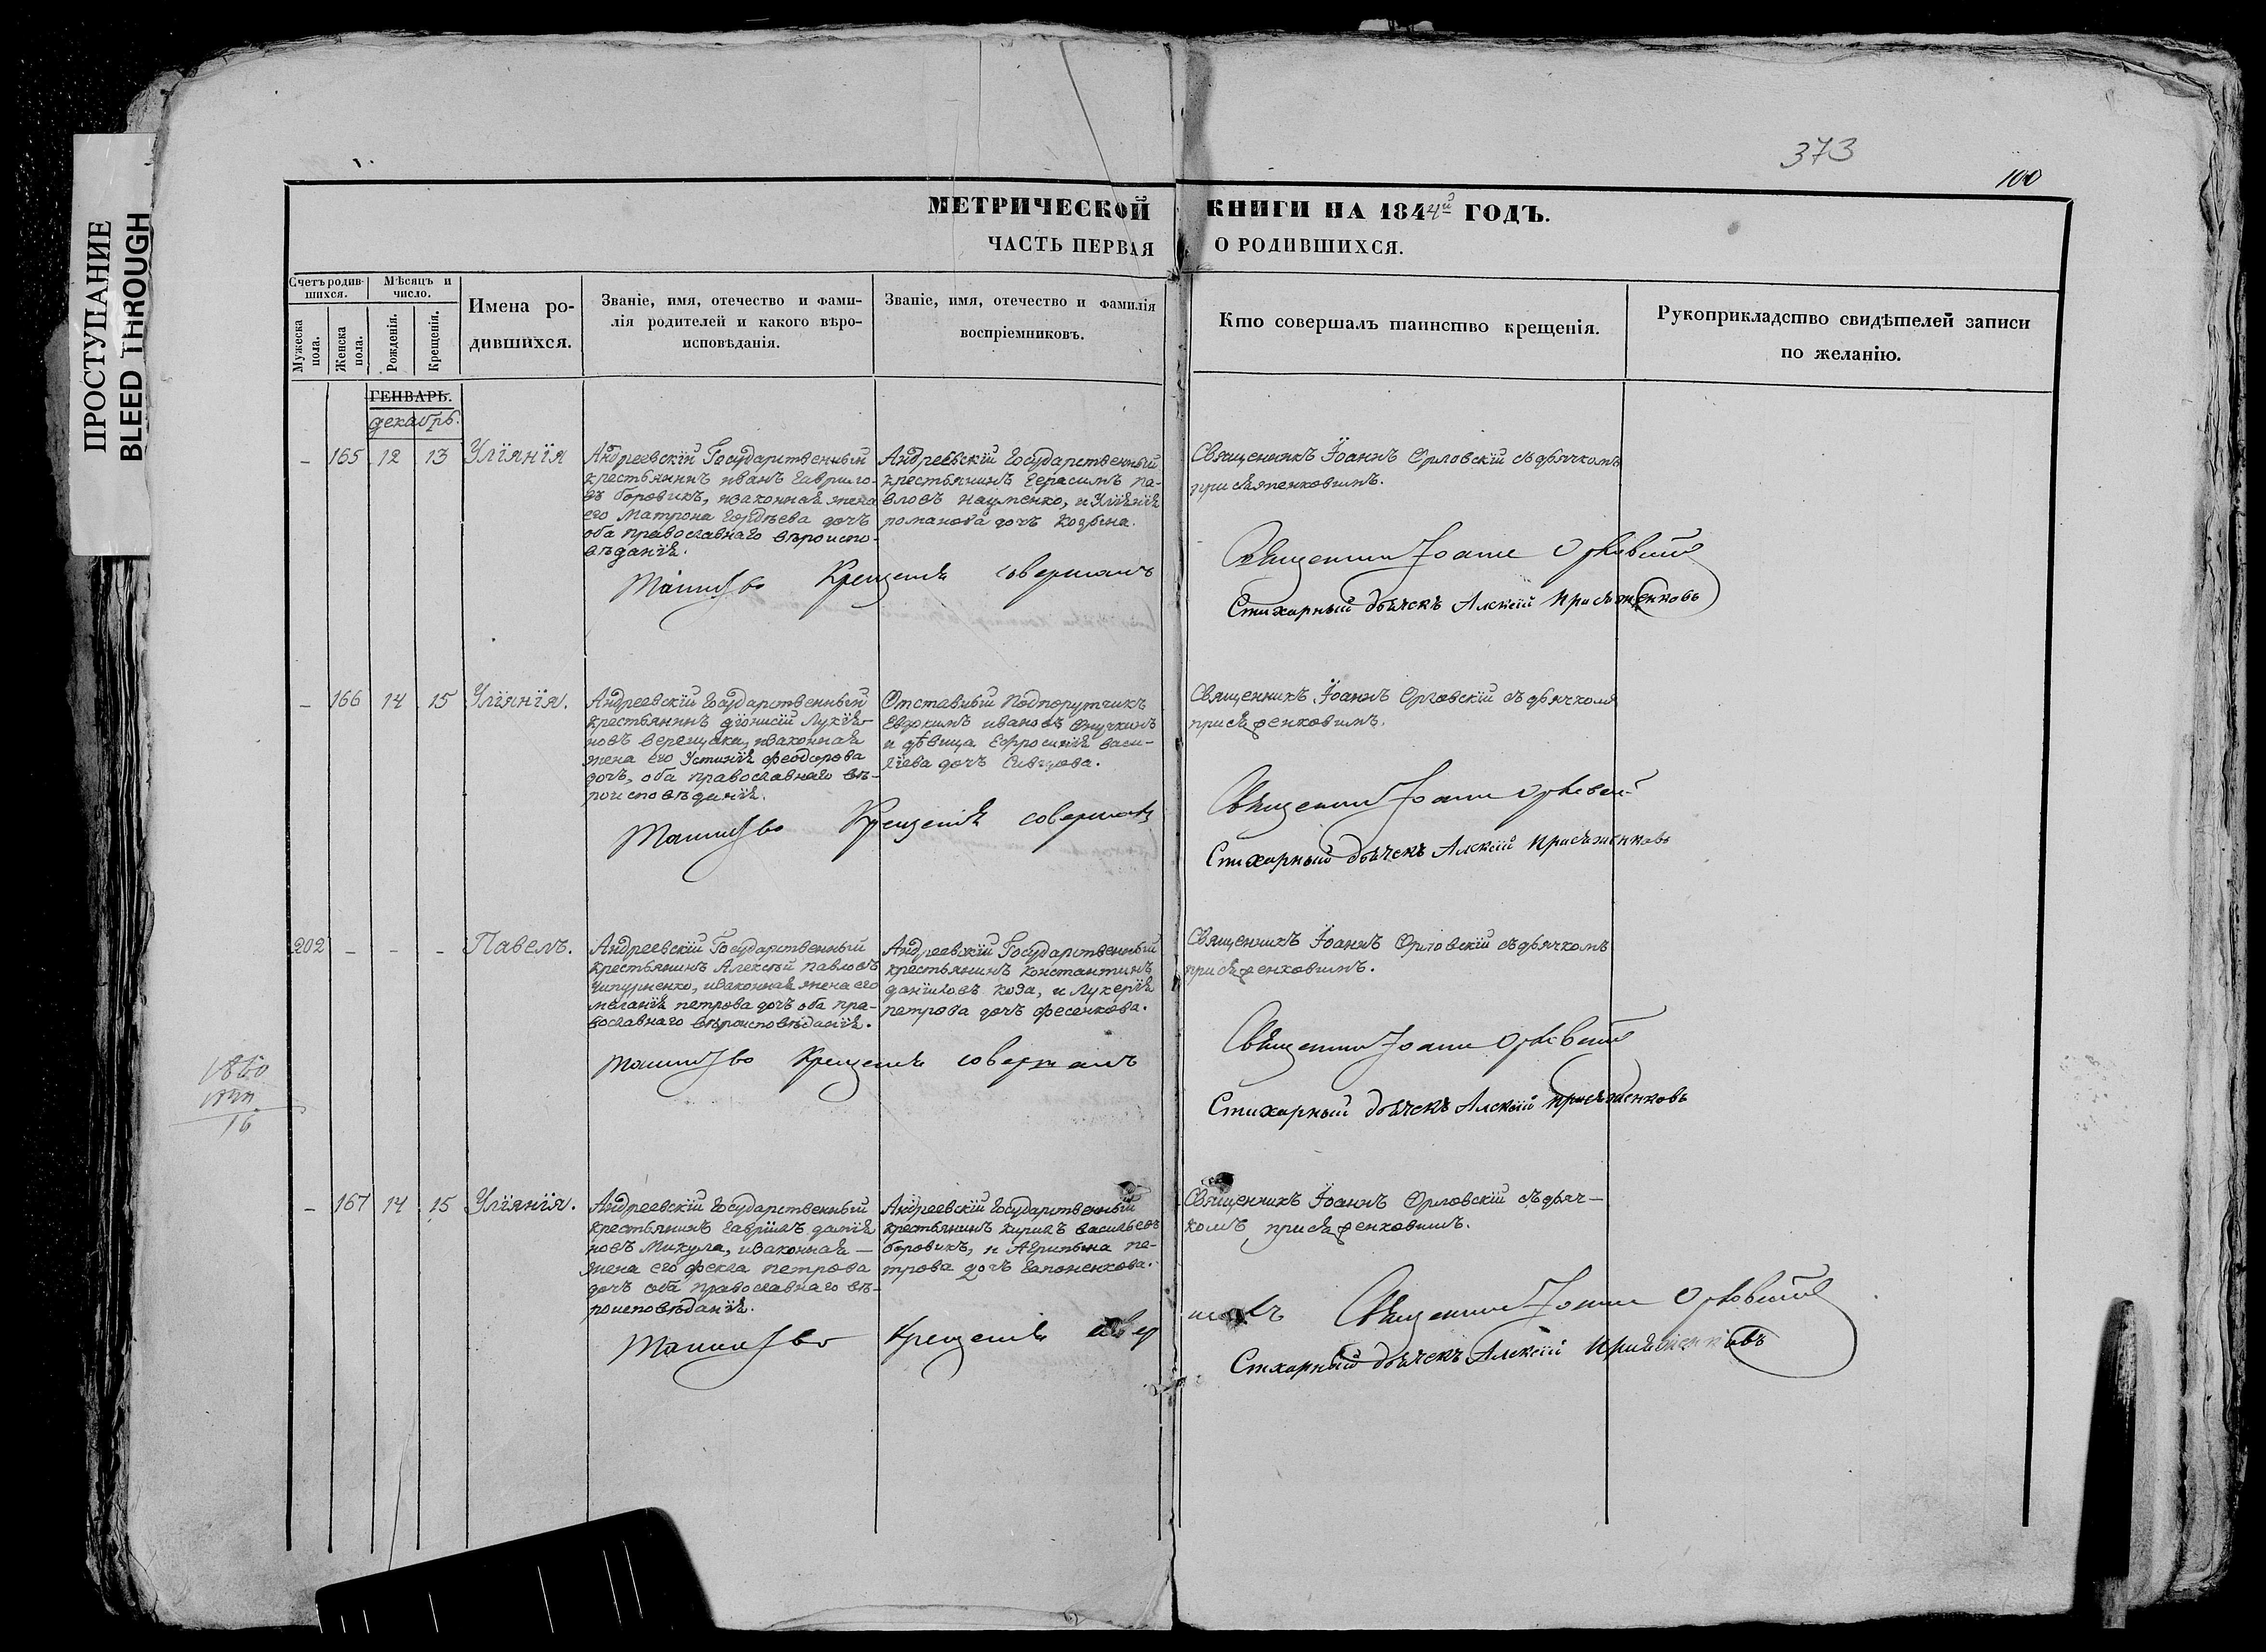 ПРОСТУПАНИЕ
BLEED THROUGH
373
100
МЕТРИЧЕСКОЙ КНИГИ НА 1844й ГОДЪ.
ЧАСТЬ ПЕРВАЯ О РОДИВШИХСЯ.
Счетъ родив-
шихся.
Мѣсяцъ и
число.
Мужеска
пола.
Женска
пола.
Рожденія.
Крещенія.
Имена ро-
дившихся.
Званіе, имя, отечество и фами-
лія родителей и какого вѣро-
исповѣданія.
Званіе, имя, отечество и фамилія
воспріемниковъ.
Кто совершалъ таинство крещенія.
Рукоприкладство свидѣтелей записи
по желанію.
ГЕНВАРЬ.
декабрь.
– 165 12 13 Уліянія
Андреевскій Государственный
крестьянинъ иванъ Гаврило-
въ боровикъ, изаконная жена
его Матрона Гордѣева дочь
оба православнаго вѣроиспо-
вѣданія.
Андреевскій Государственный
крестьянинъ Герасимъ Па-
вловъ науменко, и Уліянія
романова дочь Козьена.
Священникъ Іоаннъ Орловскій съ дьячкомъ
присяженковымъ.
Таинство Крещенія совершалъ
Священникъ Іоаннъ Орловскій
Стихарный дьячекъ Алексій Присяженковъ
– 166 14 15 Уліянія.
Андреевскій Государственный
крестьянинъ діонисій Лукія-
новъ верещака, изаконная
жена его Устинія феодорова
дочь, оба православнаго вѣ-
роисповѣданія.
Отставный Подпорутчикъ
Евдокимъ ивановъ Внучкинъ
и дѣвица Ефросинія васи-
ліева дочь Сивцова.
Священникъ Іоаннъ Орловскій съ дьячкомъ
присяженковымъ.
Таинство Крещенія совершалъ
Священникъ Іоаннъ Орловскій
Стихарный дьячекъ Алексій Присяженковъ
202 – – – Павелъ.
Андреевскій Государственный
крестьянинъ Алексѣй павловъ
Чипурненко, изаконная жена его
меланія петрова дочь оба пра-
вославнаго вѣроисповѣданія.
Андреевскій Государственный
крестьянинъ Константинъ
даниловъ коза, и Лукерія
петрова дочь фесенкова.
Священникъ Іоаннъ Орловскій съ дьячкомъ
присяженковымъ.
Таинство Крещенія совершалъ
Священникъ Іоаннъ Орловскій
Стихарный дьячекъ Алексій Присяженковъ
1860
1844
16
– 167 14 15 Уліянія.
Андреевскій Государственный
крестьянинъ Гавріилъ даміа
новъ Микула, изаконная —
жена его фекла петрова
дочь оба православнаго вѣ-
роисповѣданія.
Андреевскій Государственный
крестьянинъ Кирилъ васильевъ
боровикъ, и Агрипына пе-
трова дочь Гапоненкова.
Священникъ Іоаннъ Орловскій съ дьяч—
комъ присяженковымъ.
Таинство Крещенія совер шалъ
Священникъ Іоаннъ Орловскій
Стихарный дьячекъ Алексій Присяженковъ